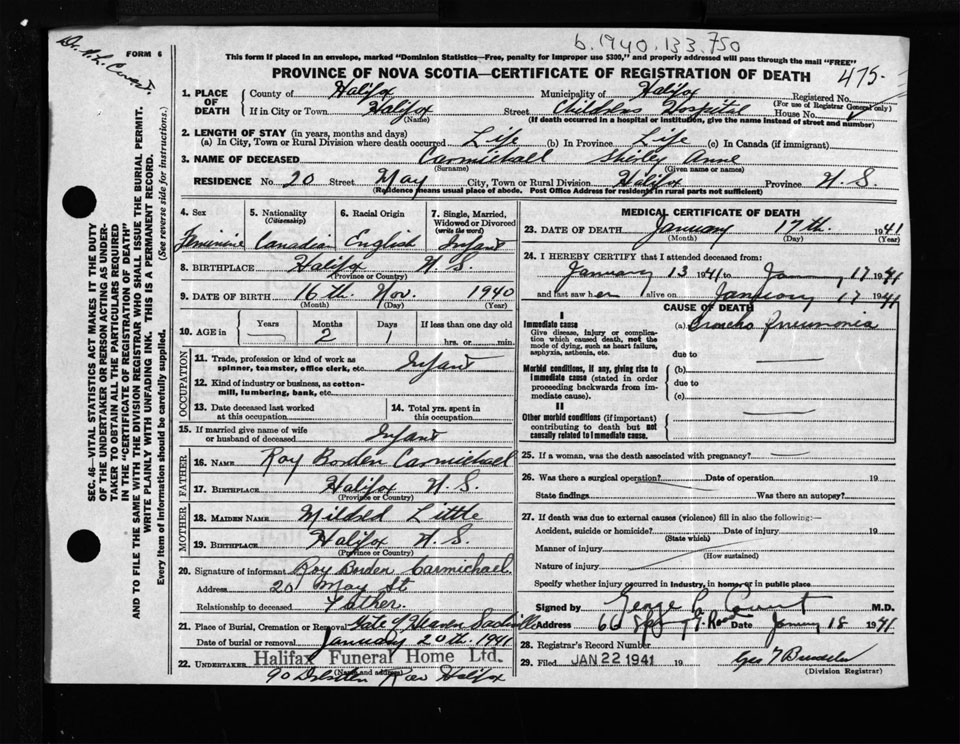 b. 1940. 133. 750
FORM 6
This form if placed in an envelope, marked "Dominion Statistics—Free, penalty for improper use $300," and properly addressed will pass through the mail "FREE"
PROVINCE OF NOVA SCOTIA—CERTIFICATE OF REGISTRATION OF DEATH
475-
1. PLACE OF DEATH County of Halifax Municipality of Halifax Registered No.
(For use of Registrar General only)
If in City or Town Halifax Street Childrens Hospital House No.
(Name) (If death occurred in a hospital or institution, give the name instead of street and number)
2. LENGTH OF STAY (in years, months and days)
(a) In City, Town or Rural Division where death occurred Life (b) In Province Life (c) In Canada (if immigrant)
3. NAME OF DECEASED Carmichael Shirley Anne
(Surname) (Given name or names)
RESIDENCE No. 20 Street May City, Town or Rural Division Halifax Province N. S.
(Residence means usual place of abode. Post Office Address for residents in rural parts not sufficient)
4. Sex
Feminine
5. Nationality (Citizenship)
Canadian
6. Racial Origin
English
7. Single, Married, Widowed or Divorced (write the word)
Infant
8. BIRTHPLACE Halifax N. S.
(Province or Country)
9. DATE OF BIRTH 16th Nov. 1940
(Month) (Day) (Year)
10. AGE in Years Months Days If less than one day old
2 1 hrs. or min.
OCCUPATION
11. Trade, profession or kind of work as spinner, teamster, office clerk, etc. Infant
12. Kind of industry or business, as cotton-mill, lumbering, bank, etc.
13. Date deceased last worked at this occupation
14. Total yrs. spent in this occupation
15. If married give name of wife or husband of deceased Infant
FATHER
16. NAME Roy Borden Carmichael
17. BIRTHPLACE Halifax N. S.
(Province or Country)
MOTHER
18. MAIDEN NAME Mildred Little
19. BIRTHPLACE Halifax N. S.
(Province or Country)
20. Signature of informant Roy Borden Carmichael
Address 20 May St
Relationship to deceased Father.
21. Place of Burial, Cremation or Removal Gate of Heaven Sackville
Date of burial or removal January 20th. 1941
22. UNDERTAKER Halifax Funeral Home Ltd.
(Name and address)
90 Halifax
MEDICAL CERTIFICATE OF DEATH
23. DATE OF DEATH January 17th. 1941
(Month) (Day) (Year)
24. I HEREBY CERTIFY that I attended deceased from:
January 13 1941 to January 17 1941
and last saw her alive on January 17 1941
CAUSE OF DEATH
I
Immediate cause (a) Broncho Pneumonia
Give disease, injury or complication which caused death, not the mode of dying, such as heart failure, asphyxia, asthenia, etc.
due to
Morbid conditions, if any, giving rise to immediate cause (stated in order proceeding backwards from immediate cause).
(b)
due to
(c)
II
Other morbid conditions (if important) contributing to death but not causally related to immediate cause.
25. If a woman, was the death associated with pregnancy?
26. Was there a surgical operation? Date of operation 19
State findings Was there an autopsy?
27. If death was due to external causes (violence) fill in also the following:—
Accident, suicide or homicide? Date of injury 19
(State which)
Manner of injury
(How sustained)
Nature of injury
Specify whether injury occurred in industry, in home, or in public place
Signed by George M.D.
Address Date January 18 1941
28. Registrar's Record Number
29. Filed JAN 22 1941 19 Geo
(Division Registrar)
SEC. 46—VITAL STATISTICS ACT MAKES IT THE DUTY
OF THE UNDERTAKER OR PERSON ACTING AS UNDER-
TAKER TO OBTAIN ALL THE PARTICULARS REQUIRED
IN THE "CERTIFICATE OF REGISTRATION OF DEATH"
AND TO FILE THE SAME WITH THE DIVISION REGISTRAR WHO SHALL ISSUE THE BURIAL PERMIT.
WRITE PLAINLY WITH UNFADING INK. THIS IS A PERMANENT RECORD.
Every item of information should be carefully supplied. (See reverse side for instructions.)